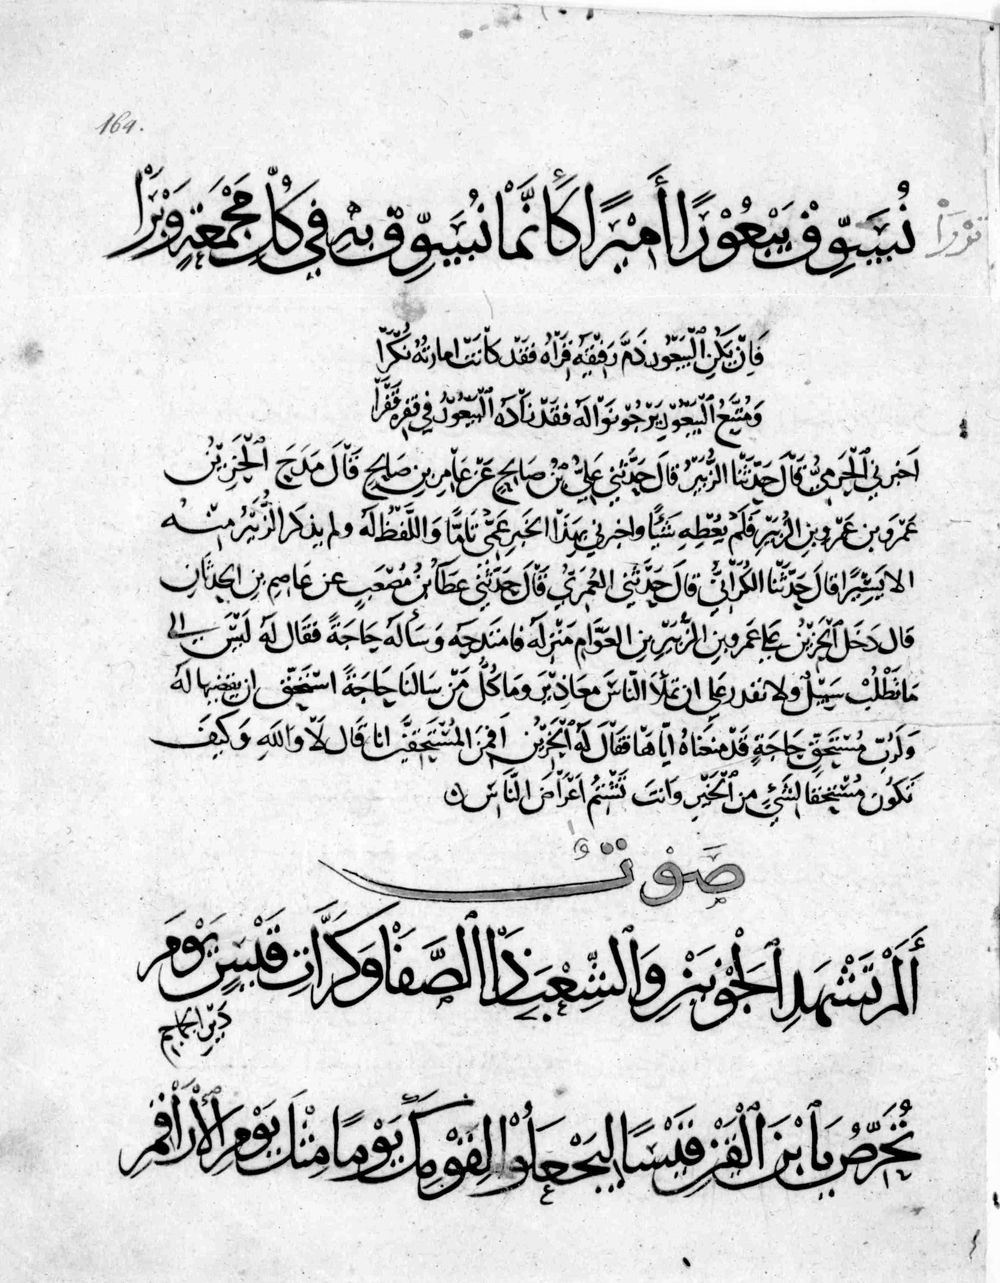 164.
نُسَوِّقُ يَبْعُورًا أَمِيرًا كَأَنَّمَا نُسَوِّقُ بِهِ فِي كُلِّ مَجْمَعَةٍ وَبْرَا
فَإِنْ يَكُنِ الْيَبْعُورُ ذَمَّ رَفِيقَهُ قِرَاهُ فَقَدْ كَانَتْ امارتُهُ نُكْرَا
وَمُتَّبِعُ الْيَبْعُورِ يَرْجُو نَوَالَهُ فَقَدْ زَادَهُ الْيَبْعُورُ فِي فقره فَقْرَا
اخبرني الْحَرَمِيُّ قَالَ حَدَّثَنَا الزُّبَيْرُ قالَ حَدَّثَنِي عَلِيُّ بْنُ صَالِحٍ عَنْ عَامِرِ بْنِ صَالِحٍ قَالَ مَدَحَ الْحَزِينُ
عَمْرَو بن عَمْرِو بن الزُّبَيْرِ فَلَمْ يُعْطِهِ شَيْئًا واخبرني بِهَذَا الخبرِ عَمِّي تَامًّا وَاللَّفْظُ لَهُ ولم يذكر الزُّبَيْرُ مِنْهُ
الا يَسِيرًا قالَ حَدَّثَنَا الكُرَانِيُّ قالَ حَدَّثَنِي العُمَرِيُّ قَالَ حَدَّثَنِي عَطَاءُ بْنُ مُصْعَبٍ عن عَاصِمِ بن الحدثَان
قال دَخَلَ الْحَزِينُ عَلَى عَمرو بنِ الزُّبَيْرِ بنِ العَوَّامِ مَنْزِلَهُ فامتدحه وَسَأَلَهُ حَاجَةً فقال لَهُ لَيْسَ الى
مَا تَطْلُبُ سَبِيلٌ ولا نقدر على ان نملأ النّاسَ مَعَاذِيرَ وَمَا كُلُّ مَنْ سَالَنَا حَاجَةً اسْتَحَقَّ ان نقضيها لَهُ
وَلَرُبَّ مُسْتَحِقِّ حَاجَةٍ قَدْ مَنَعْنَاهُ ايَّاهَا فَقَالَ لَهُ الْحَزِينُ افمن المُسْتَحِقِّينَ انا قال لا وَاللهِ وَكَيْفَ
تَكُون مُسْتَحِقًّا لِشَيْءٍ مِنَ الْخَيْرِ وانت تَشْتُمُ اعْرَاضَ النَّاسِ
صَوْتٌ
أَلَمْ تَشْهَدِ الْجَوْنَيْنِ وَالشِّعْبَ ذَا الصَّفَا وَكَرَّاتِ قَيْسٍ يَوْمَ
دَيْرِ الجَمَاجِمِ
تُحَرِّضُ يَا بْنَ الْقَيْنِ قَيْسًا لِيَجْعَلُوا لِقَوْمِكَ يَوْمًا مِثْلَ يَوْمِ الْأَرَاقِمِ